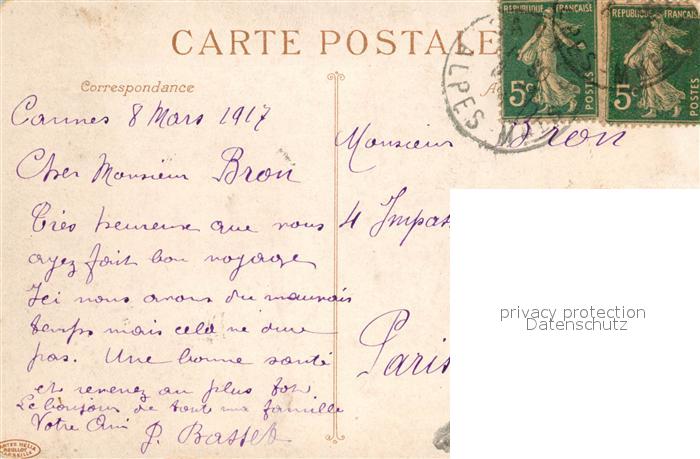 CARTE POSTALE
Correspondance
REPUBLIQUE FRANÇAISE
5c
POSTES
REPUBLIQUE FRANÇAISE
5c
POSTES
ALPES-M
Cannes 8 Mars 1917
Cher Monsieur Bron
Très heureuse que vous
ayez fait bon voyage
Ici nous avons du mauvais
temps mais cela ne dure
pas. Une bonne santé
et revenez au plus tôt
Le bonjour de tout ma famille
Votre Ami
P. Basset
Monsieur Bron
4 Impas
Paris
privacy protection
Datenschutz